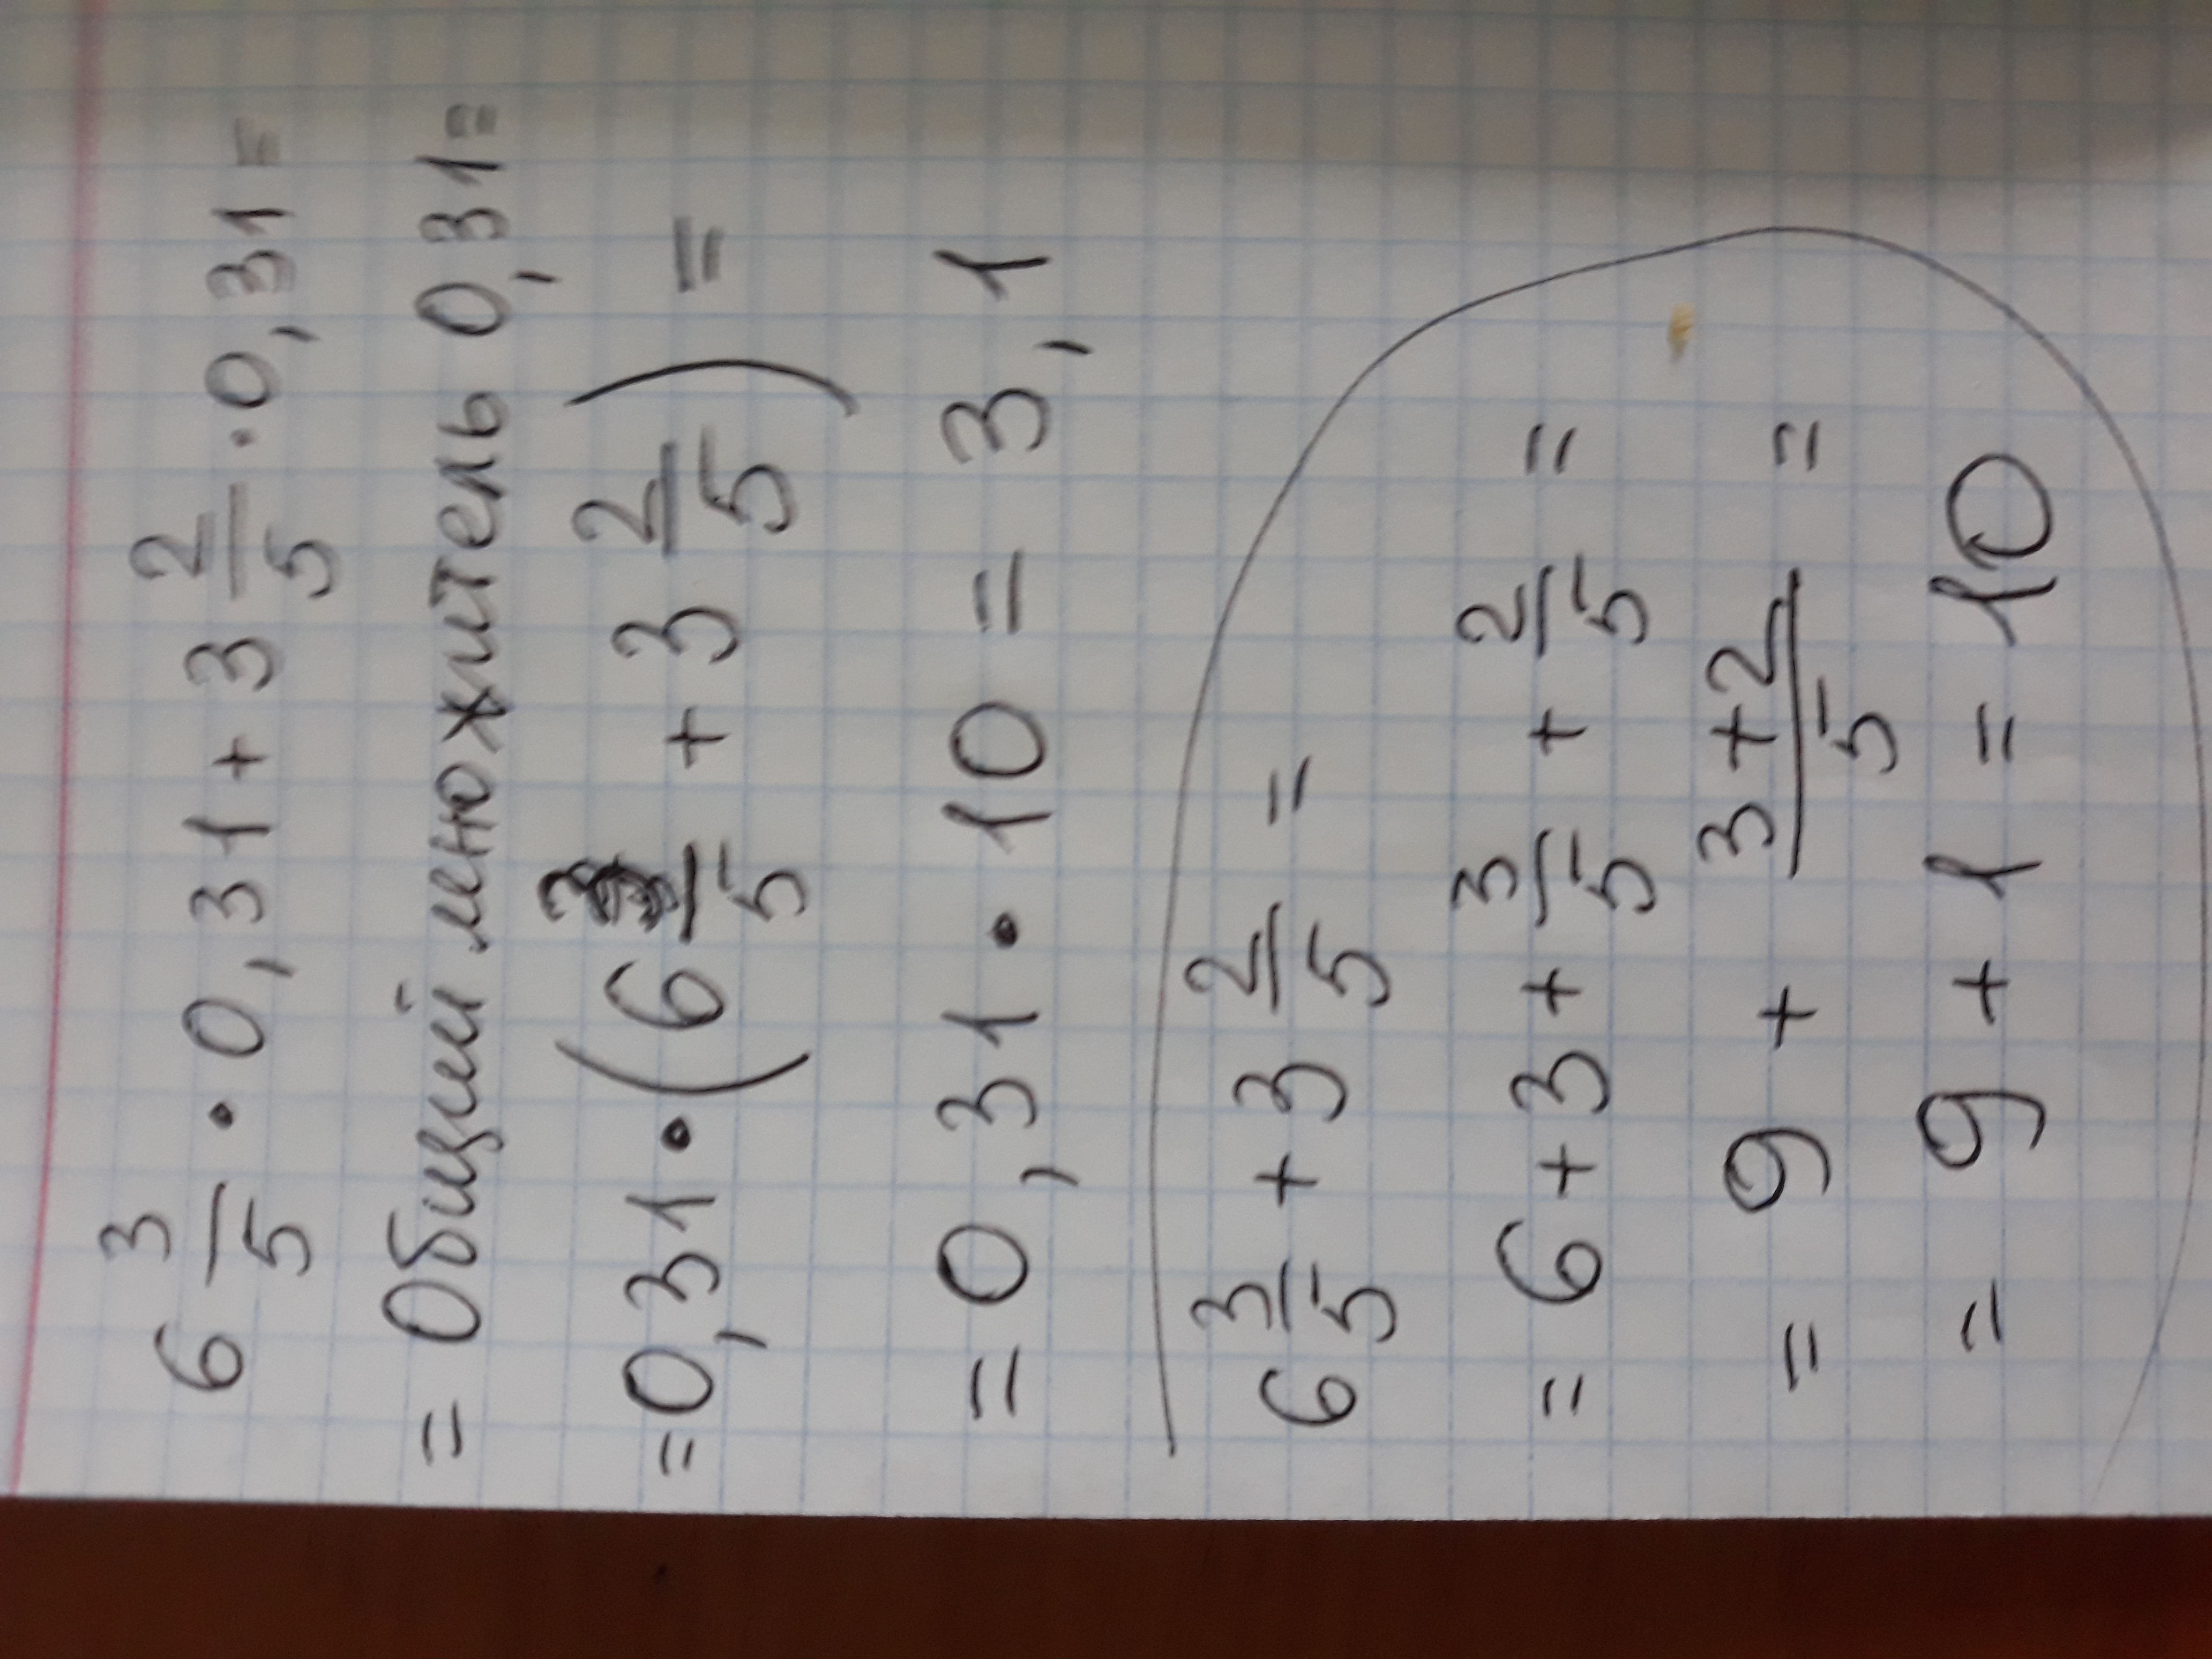 6 3/5 · 0,31 + 3 2/5 · 0,31 =
= Общий множитель 0,31 =
= 0,31 · (6 3/5 + 3 2/5) =
= 0,31 · 10 = 3,1
6 3/5 + 3 2/5 =
= 6 + 3 + 3/5 + 2/5 =
= 9 + 3+2/5 =
= 9 + 1 = 10